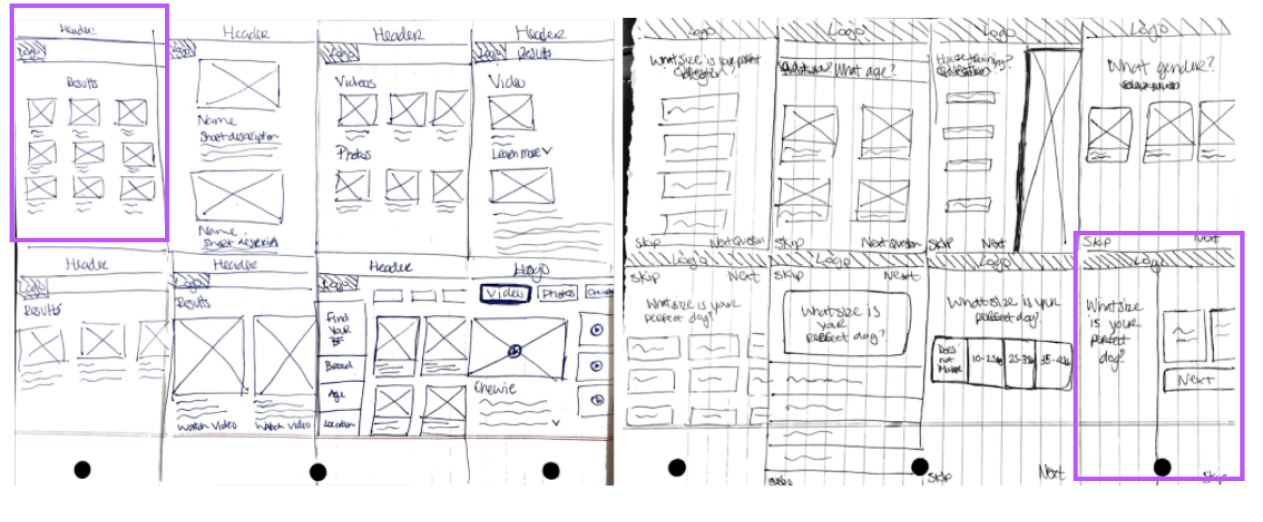 Header
Logo
Results
Header
Logo
Name
Short description
Name
Short descrip
Header
Logo
Videos
Photos
Header
Logo
Results
Video
Learn more
Header
Logo
Results
Header
Logo
Results
Watch Video
Watch Video
Header
Logo
Find
Your
BF
Breed
Age
Location
Logo
Video
Photos
Chewie
Logo
What size is your perfect
Skip
Next Question
Logo
What age?
Skip
Next Question
Logo
House training?
Skip
Next
Logo
What gender?
Skip
Next
Logo
Skip
Next
What size is your
perfect dog?
Logo
Skip
Next
What size is
your
perfect dog?
Logo
What size is your
perfect dog?
Does
not
Matter
Skip
Next
Logo
What size
is your
perfect
dog?
Next
Skip